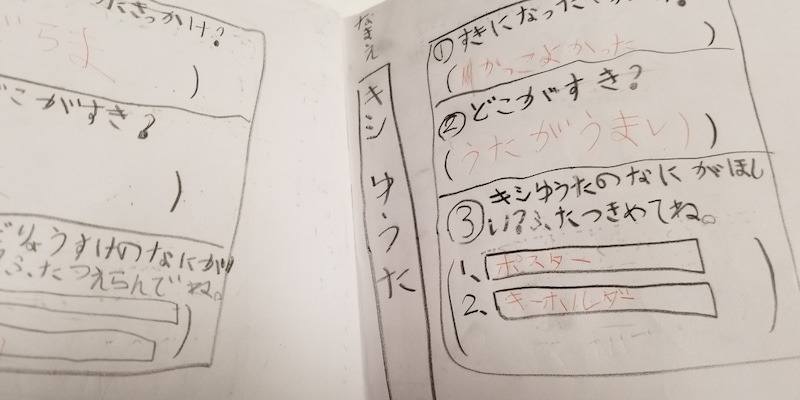 たきっかけ?
らよ
)
こがすき?
)
りょうすけのなにが
ふたつえらんでね。
)
なまえ
キシ ゆうた
① すきになった
(かっこよかった)
② どこがすき?
(うたがうまい)
③ キシゆうたのなにがほし
い?ふたつきめてね。
1、ポスター
2、キーホルダー